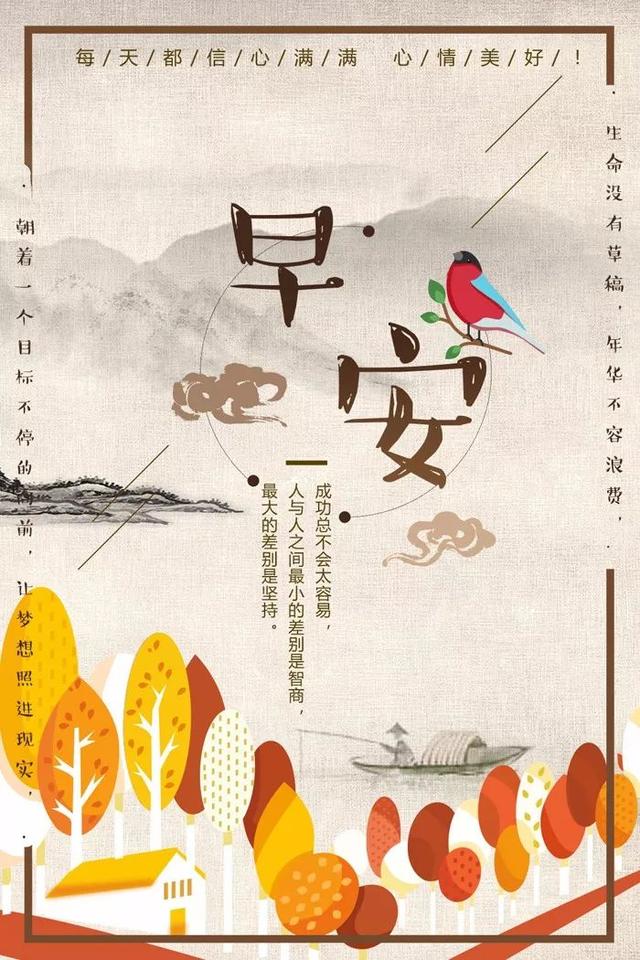 每/天/都/信/心/满/满 心/情/美/好/!
·生命没有草稿，年华不容浪费，·
早
安
成功总不会太容易，
人与人之间最小的差别是智商，
最大的差别是坚持。
·朝着一个目标不停的向前，让梦想照进现实，·